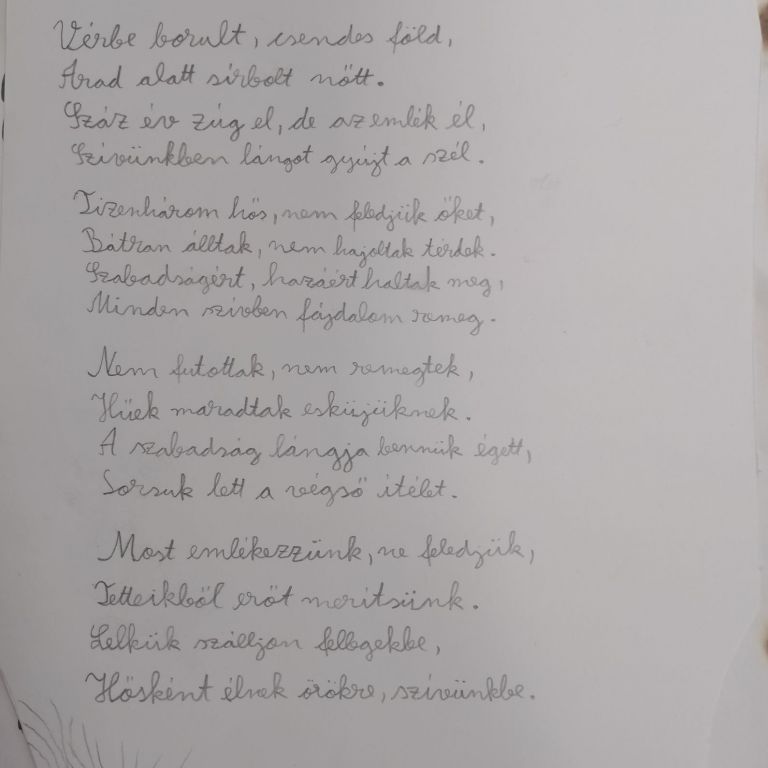 Vérbe borult, csendes föld,
Arad alatt sírbolt nőtt.
Száz év zúg el, de az emlék él,
Szívünkben lángot gyújt a szél.
Tizenhárom hős, nem feledjük őket,
Bátran álltak, nem hajoltak térdek.
Szabadságért, hazáért haltak meg,
Minden szívben fájdalom remeg.
Nem futottak, nem remegtek,
Hűek maradtak esküjüknek.
A szabadság lángja bennük égett,
Sorsuk lett a végső ítélet.
Most emlékezzünk, ne feledjük,
Tetteikből erőt merítsünk.
Lelkük szálljon fellegekbe,
Hősként élnek örökre, szívünkbe.